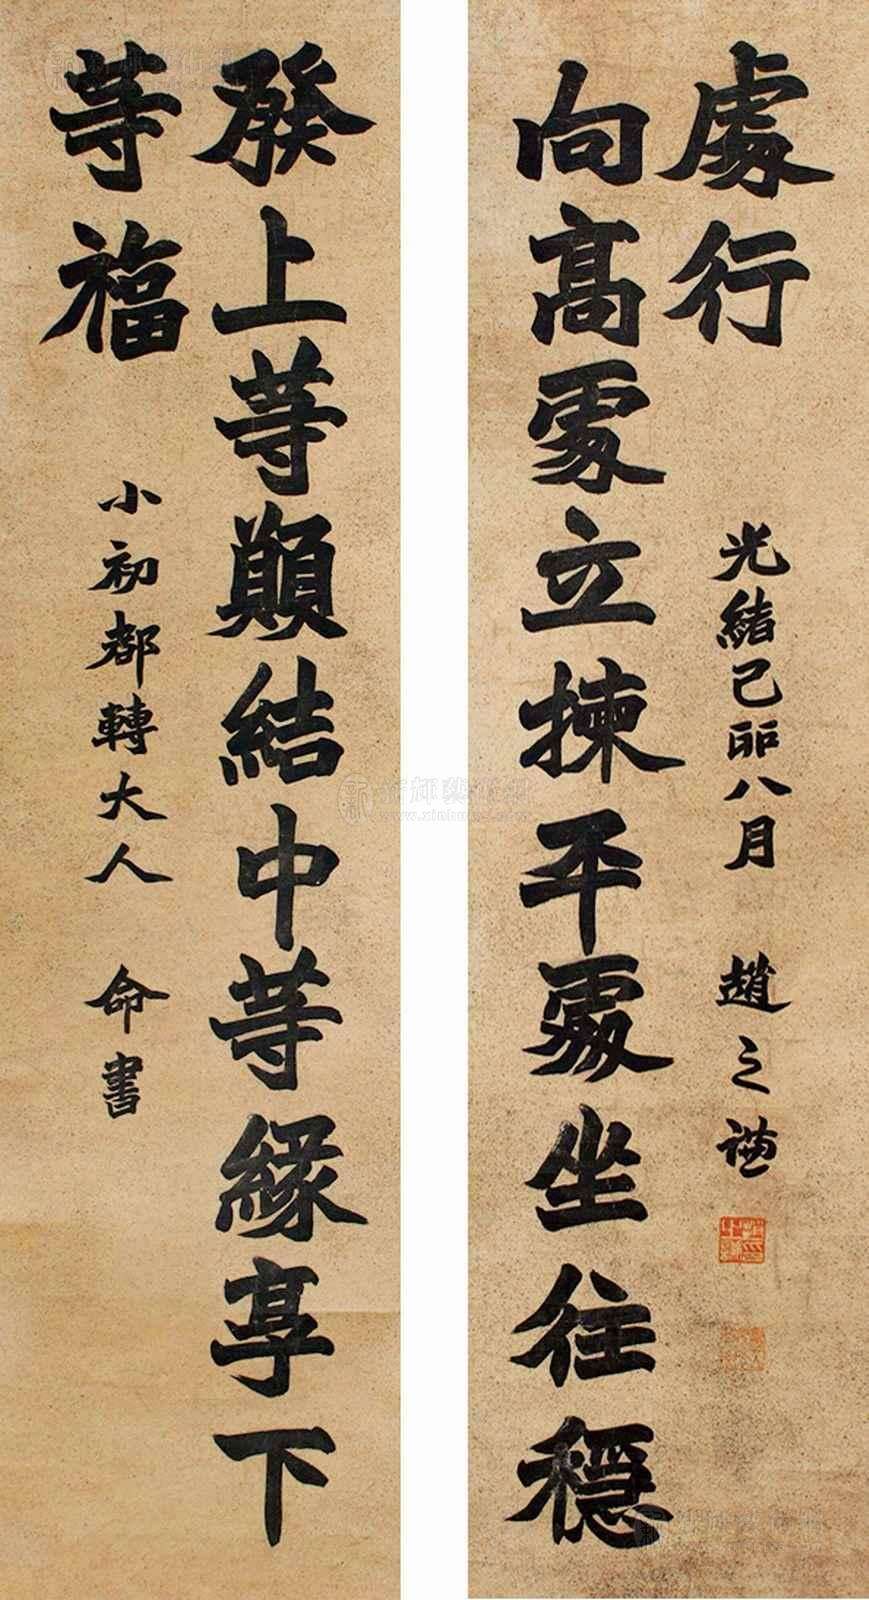 發上等願結中等緣享下
等福
小初都轉大人 命書
向高處立揀平處坐往穩
處行
光緒己卯八月 趙之謙